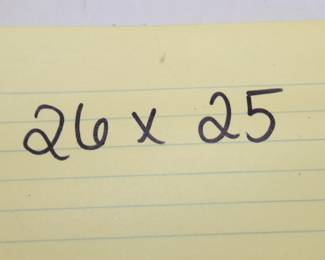 26 x 25